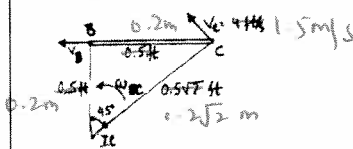 B 0.2m Vc= 4 ft/s 1.5m/s
V_B 0.5ft C
0.5ft ω_BC 0.5√2 ft
0.2m 45° 0.2√2 m
IC